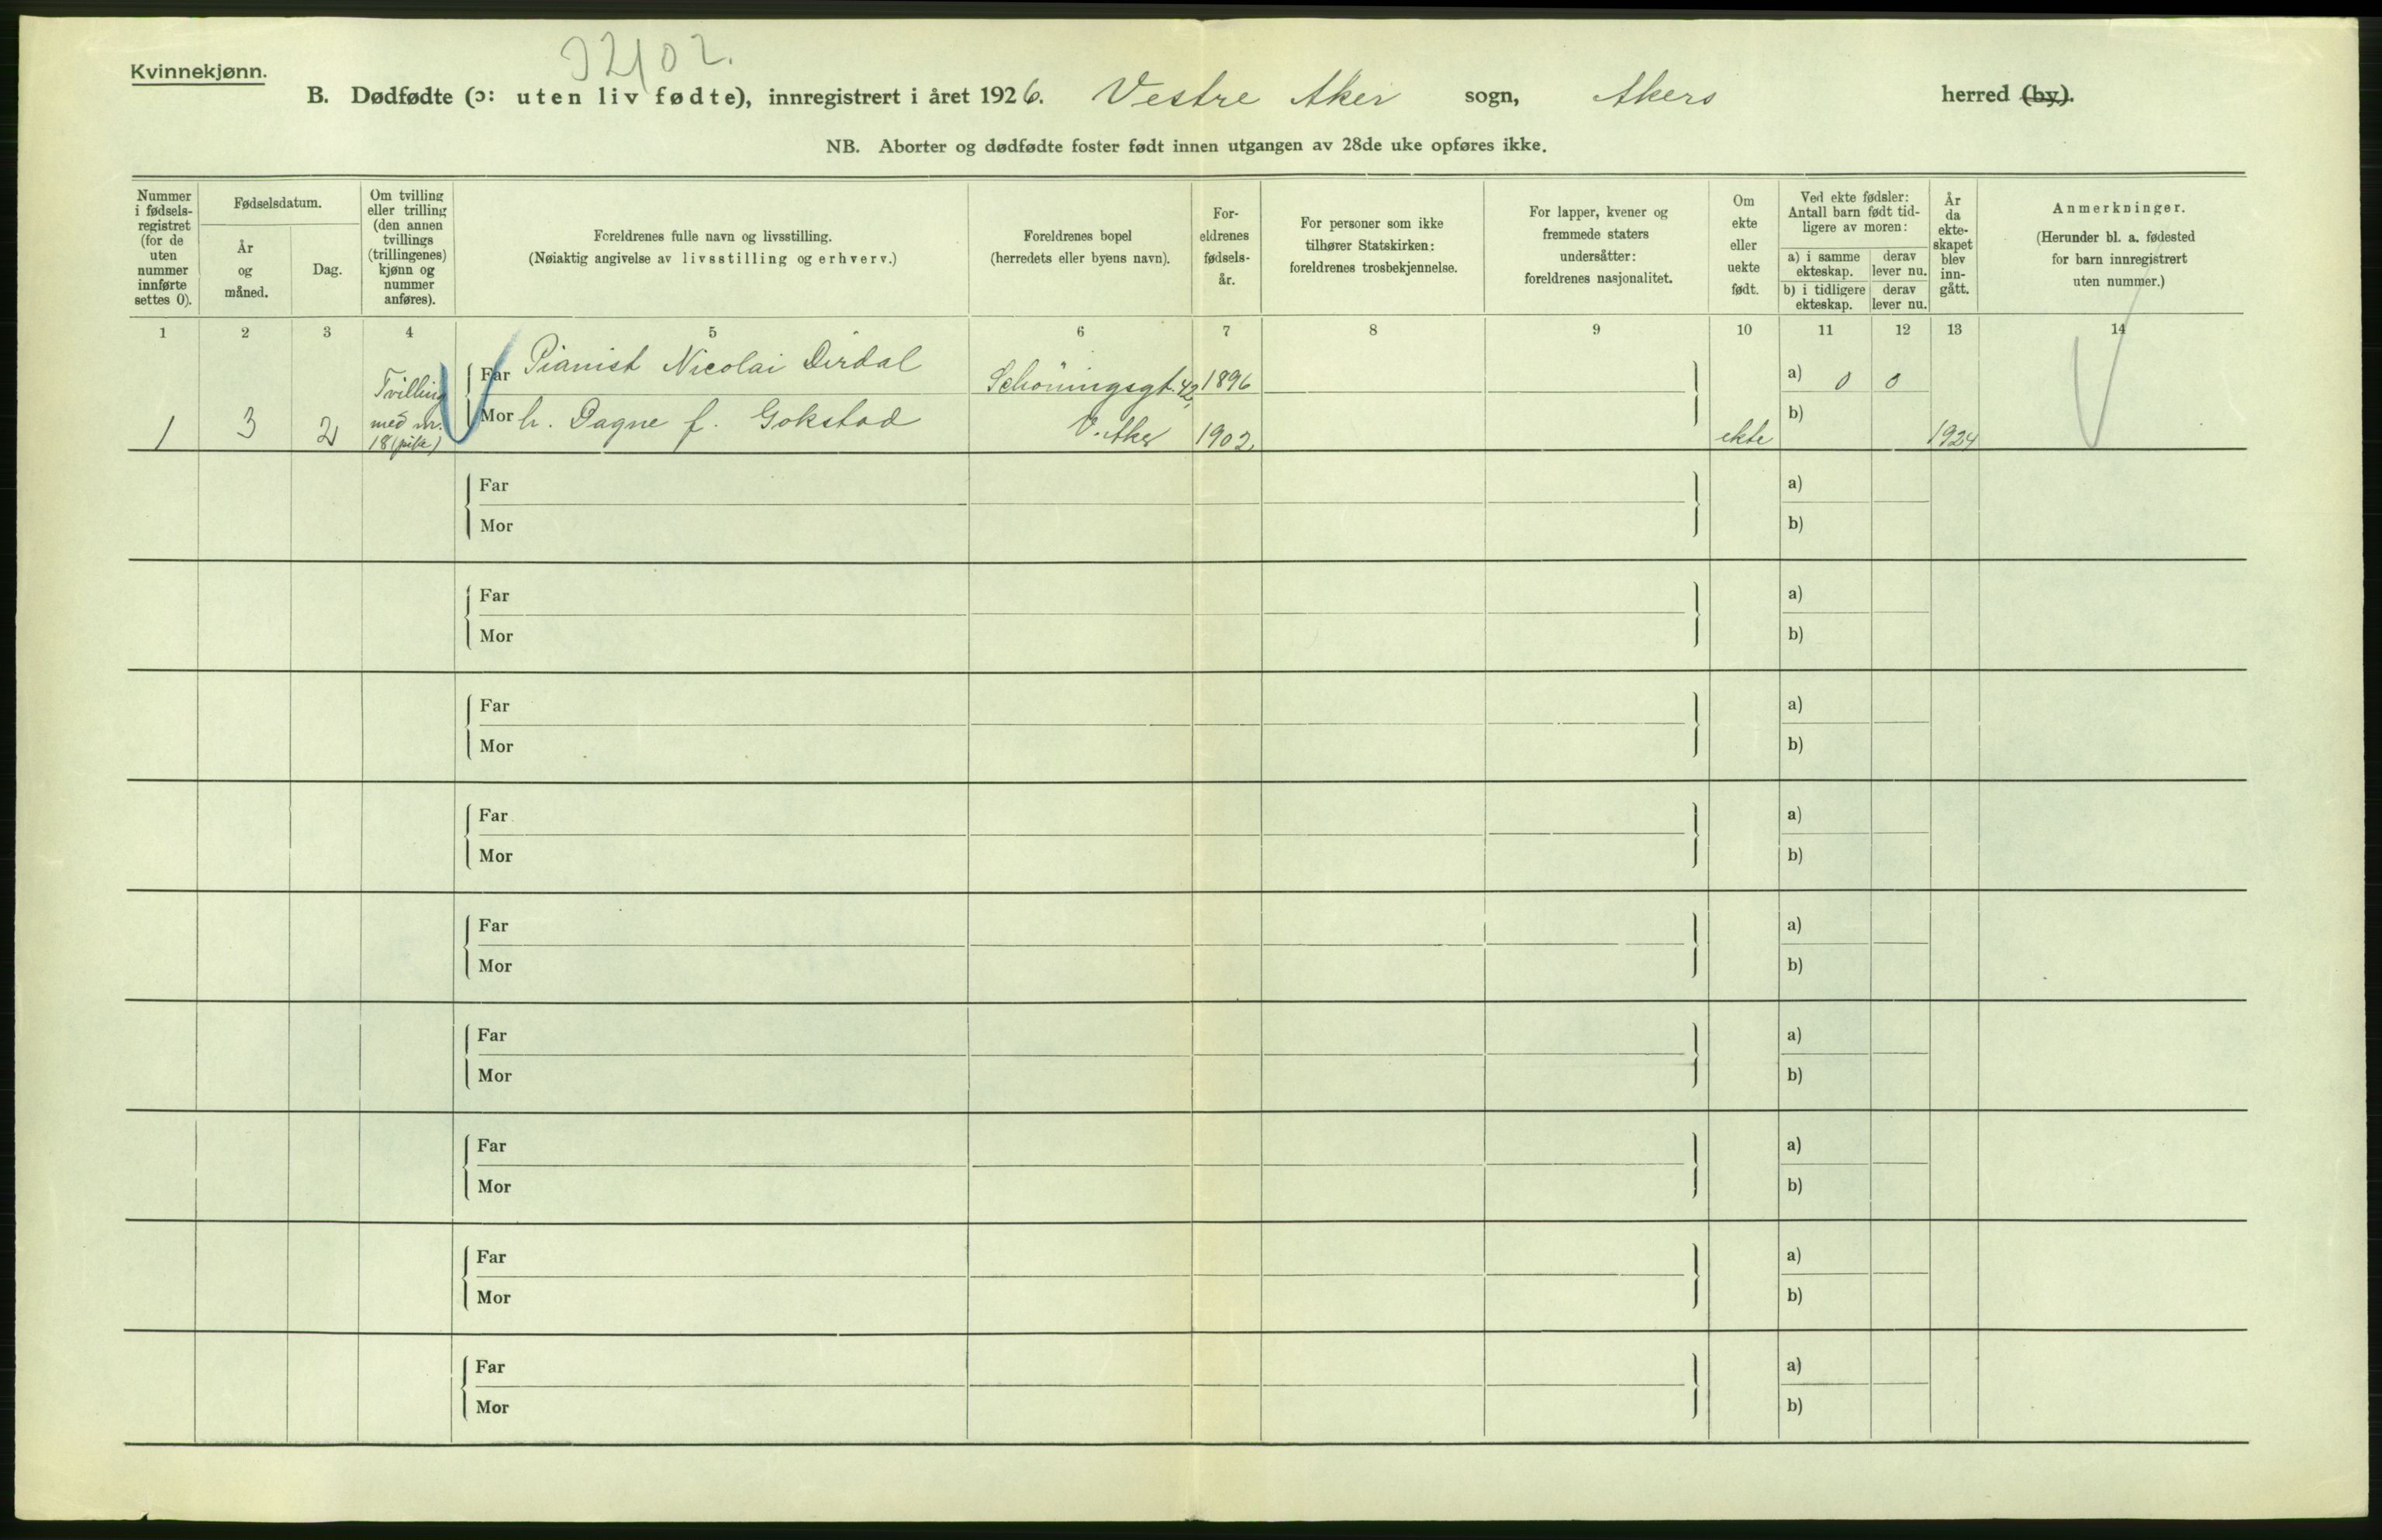 Kvinnekjønn.
B. Dødfødte (ɔ: uten liv fødte), innregistrert i året 1926. Vestre Aker sogn, Akers herred (by).
NB. Aborter og dødfødte foster født innen utgangen av 28de uke opføres ikke.
Nummer
i fødsels-
registret
(for de
uten
nummer
innførte
settes 0).
Fødselsdatum.
År
og
måned.
Dag.
Om tvilling
eller trilling
(den annen
tvillings
(trillingenes)
kjønn og
nummer
anføres).
Foreldrenes fulle navn og livsstilling.
(Nøiaktig angivelse av livsstilling og erhverv.)
Foreldrenes bopel
(herredets eller byens navn).
For-
eldrenes
fødsels-
år.
For personer som ikke
tilhører Statskirken:
foreldrenes trosbekjennelse.
For lapper, kvener og
fremmede staters
undersåtter:
foreldrenes nasjonalitet.
Om
ekte
eller
uekte
født.
Ved ekte fødsler:
Antall barn født tid-
ligere av moren:
a) i samme
ekteskap.
derav
lever nu.
b) i tidligere
ekteskap.
derav
lever nu.
År
da
ekte-
skapet
blev
inn-
gått.
Anmerkninger.
(Herunder bl. a. fødested
for barn innregistrert
uten nummer.)
1 2 3 4 5 6 7 8 9 10 11 12 13 14
Tvilling
med nr.
18 (pike)
Far Pianist Nicolai Dirdal Schöningsgt. 42, 1896 a) 0 0
1 3 2 Mor h. Dagne f. Gokstad V. Aker 1902 ekte b) 1924
Far a)
Mor b)
Far a)
Mor b)
Far a)
Mor b)
Far a)
Mor b)
Far a)
Mor b)
Far a)
Mor b)
Far a)
Mor b)
Far a)
Mor b)
Far a)
Mor b)